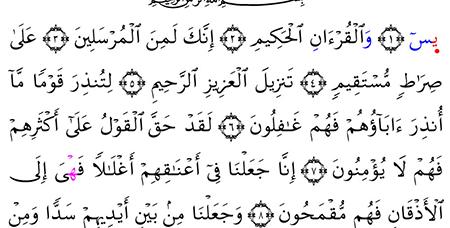 يسٓ ﴿١﴾ وَٱلْقُرْءَانِ ٱلْحَكِيمِ ﴿٢﴾ إِنَّكَ لَمِنَ ٱلْمُرْسَلِينَ ﴿٣﴾ عَلَىٰ
صِرَٰطٖ مُّسْتَقِيمٖ ﴿٤﴾ تَنزِيلُ ٱلْعَزِيزِ ٱلرَّحِيمِ ﴿٥﴾ لِتُنذِرَ قَوْمٗا مَّآ
أُنذِرَ ءَابَآؤُهُمْ فَهُمْ غَٰفِلُونَ ﴿٦﴾ لَقَدْ حَقَّ ٱلْقَوْلُ عَلَىٰٓ أَكْثَرِهِمْ
فَهُمْ لَا يُؤْمِنُونَ ﴿٧﴾ إِنَّا جَعَلْنَا فِىٓ أَعْنَٰقِهِمْ أَغْلَٰلٗا فَهْىَ إِلَى
ٱلْأَذْقَانِ فَهُم مُّقْمَحُونَ ﴿٨﴾ وَجَعَلْنَا مِنۢ بَيْنِ أَيْدِيهِمْ سُدّٗا وَمِنْ